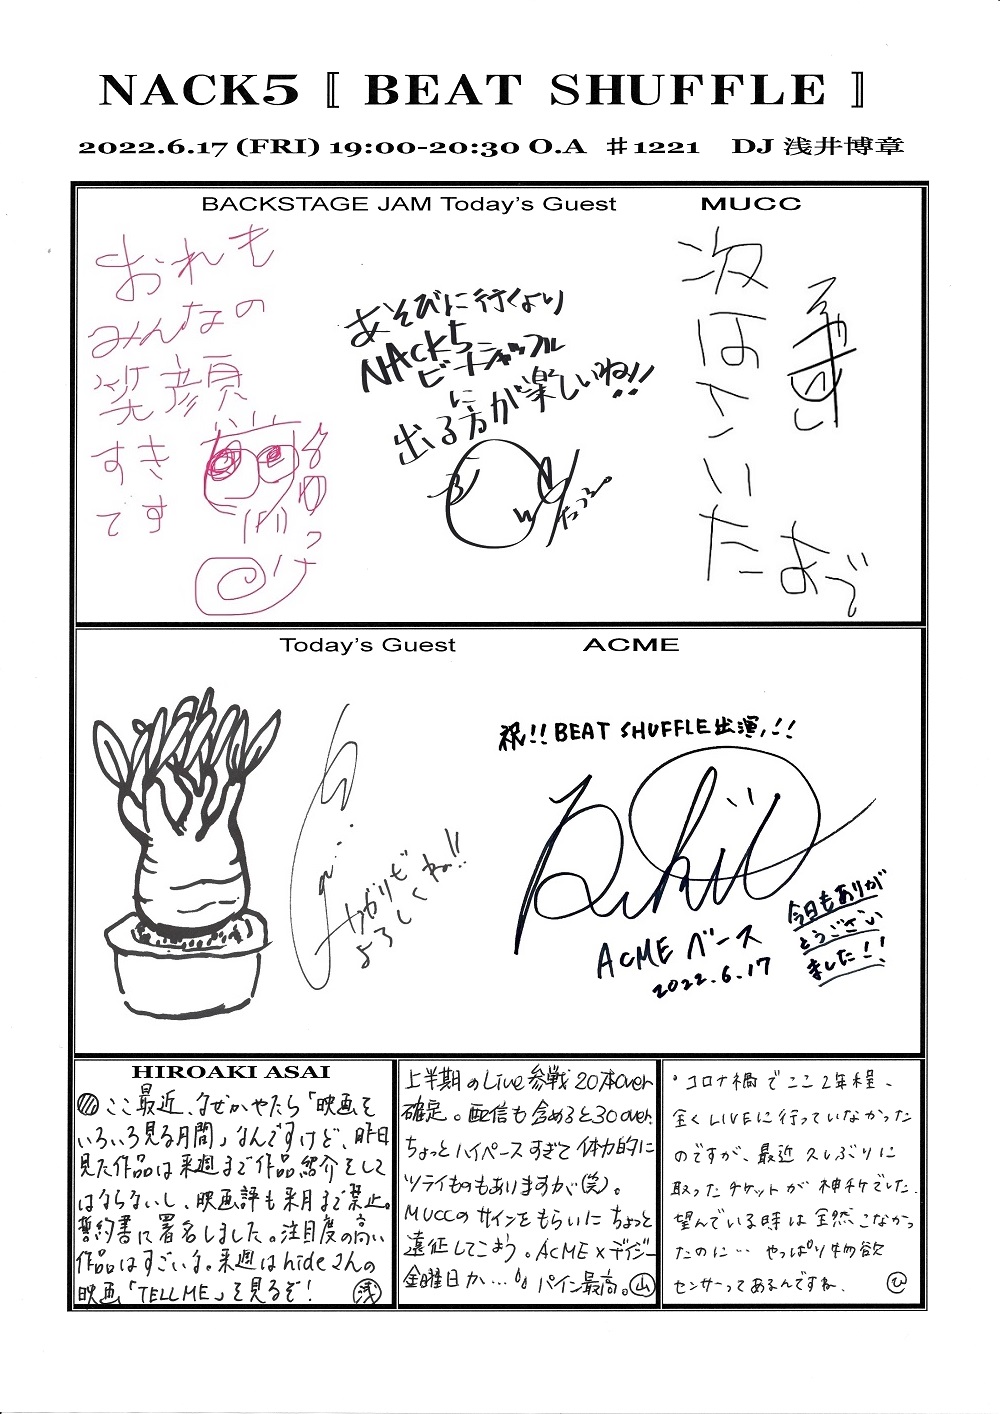 NACK5 〚 BEAT SHUFFLE 〛
2022.6.17 (FRI) 19:00-20:30 O.A ♯1221 DJ 浅井博章
BACKSTAGE JAM Today's Guest MUCC
おれも
みんなの
笑顔
すき
です
あそびに行くより
NACK5
ビートシャッフル
に
出る方が楽しいね!!
たつろう
次は
さいたま
Today's Guest ACME
祝!!BEAT SHUFFLE出演!!
かがりも
よろしくね!!
ACME ベース
2022.6.17
今日もありが
とうござい
ました!!
HIROAKI ASAI
ここ最近、なぜかやたら「映画を
いろいろ見る月間」なんですけど、昨日
見た作品は来週まで作品紹介をして
はならないし、映画評も来月まで禁止。
誓約書に署名しました。注目度の高い
作品はすごいな。来週はhideさんの
映画「TELL ME」を見るぞ! 浅
上半期のLive参戦20本over
確定。配信も含めると30over.
ちょっとハイペースすぎて体力的に
ツライものもありますが(笑)。
MUCCのサインをもらいにちょっと
遠征してこよう。ACME×デイジー
金曜日か…。パイン最高。山
・コロナ禍でここ2年程、
全くLIVEに行っていなかった
のですが、最近久しぶりに
取ったチケットが神杯でした.
望んでいる時は全然こなかっ
たのに… やっぱり物欲
センサーってあるんですね. ひ